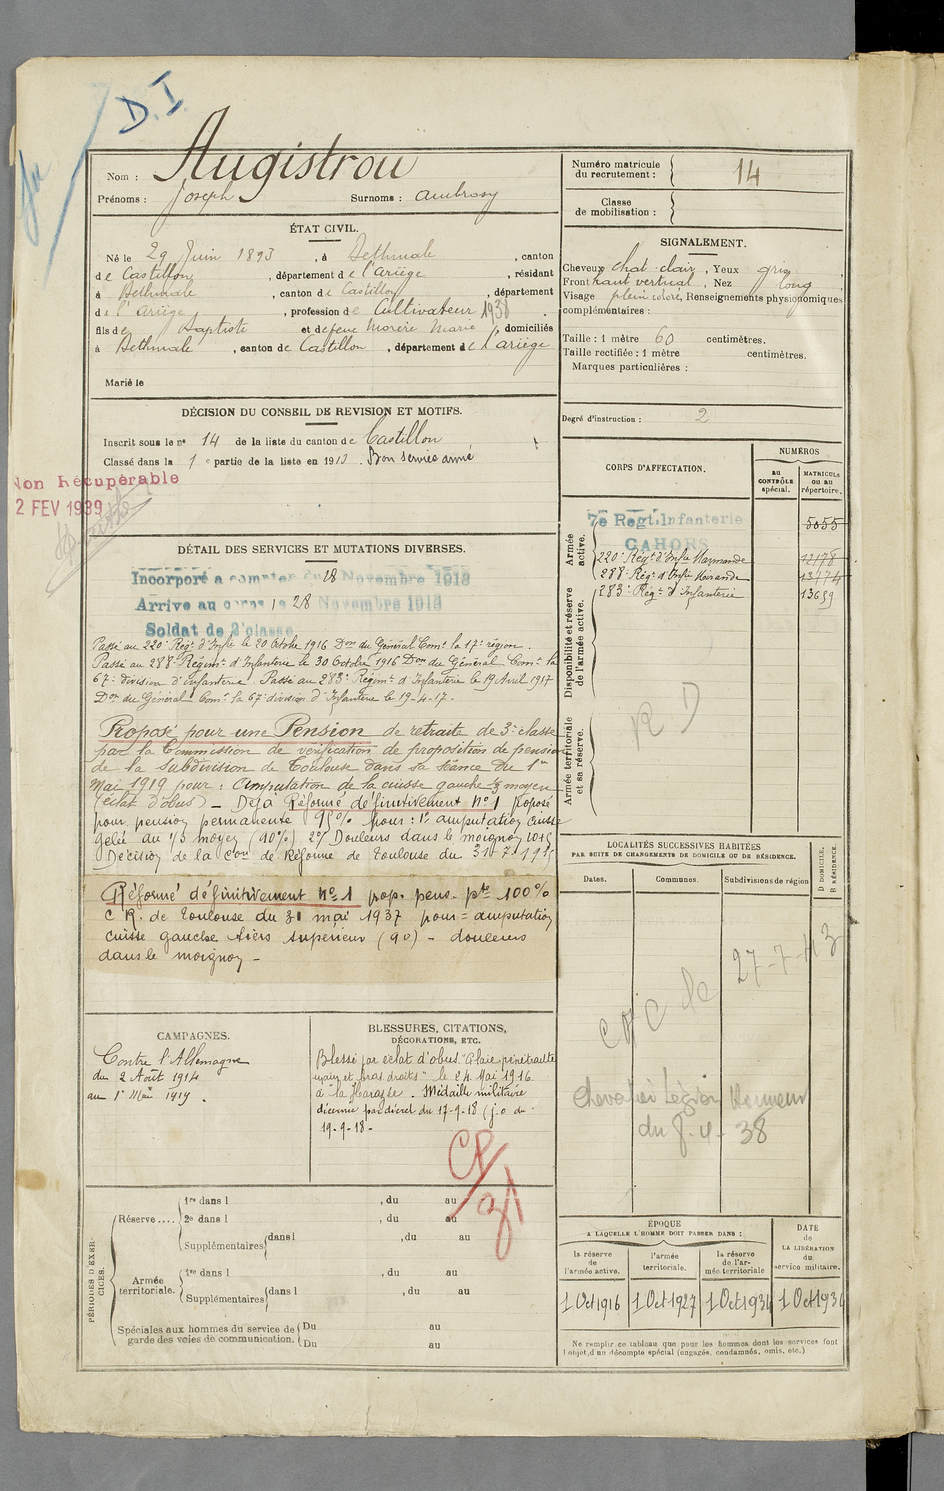 D.I.
Nom : Augistrou
Prénoms : Joseph Surnoms : Ambrosy
ÉTAT CIVIL.
Né le 29 Juin 1893, à Bethmale, canton
de Castillon, département de l'Ariège, résidant
à Bethmale, canton de Castillon, département
de l'Ariège, profession de Cultivateur 1938.
fils de Baptiste et de feue Morère Marie, domiciliés
à Bethmale, canton de Castillon, département de l'Ariège
Marié le
DÉCISION DU CONSEIL DE REVISION ET MOTIFS.
Inscrit sous le no 14 de la liste du canton de Castillon
Classé dans la 1e partie de la liste en 1913. Bon service armé
Non Récupérable
2 FEV 1939
DÉTAIL DES SERVICES ET MUTATIONS DIVERSES.
Incorporé a compter du 28 Novembre 1913
Arrive au corps le 28 Novembre 1913
Soldat de 2e classe
Passé au 220e Régt d'Infie le 20 Octobre 1916 Don du Général Comt la 17e région.
Passé au 288e Régimt d'Infanterie le 30 Octobre 1916 Don du Général Comt la
67e division d'infanterie. Passé au 283e Régimt d'Infanterie le 19 Avril 1917
Don du Général Comt la 67e division d'Infanterie le 19-4-17.
Proposé pour une Pension de retraite de 3e classe
par la Commission de vérification de proposition de pension
de la subdivision de Toulouse dans sa séance du 1er
Mai 1919 pour : Amputation de la cuisse gauche 1/3 moyen
(éclat d'obus) - Déjà Réformé définitivement No 1 proposé
pour pension permanente 95% pour : 1o amputation cuisse
gche au 1/3 moyen (90%) 2o Douleurs dans le moignon 10+5
Décision de la Con de Réforme de Toulouse du 31-7-19
Réformé définitivement No 1 prop. pens. pte 100%
C R. de Toulouse du 31 mai 1937 pour = amputation
cuisse gauche tiers supérieur (90) - douleurs
dans le moignon -
CAMPAGNES.
Contre l'Allemagne
du 2 Août 1914
au 1er Mai 1919.
BLESSURES, CITATIONS,
DÉCORATIONS, ETC.
Blessé par éclat d'obus "Plaie pénétrante
main et bras droits" le 24 Mai 1916
à la Harazée. Médaille militaire
décernée par décret du 17-9-18 (j.o du
19-9-18-
CP/31
PÉRIODES D'EXERCICES.
Réserve.... 1re dans l , du au
2e dans l , du au
Supplémentaires dans l , du au
Armée territoriale. 1re dans l , du au
Supplémentaires dans l , du au
Spéciales aux hommes du service de Du au
garde des voies de communication. Du au
Numéro matricule
du recrutement : 14
Classe
de mobilisation :
SIGNALEMENT.
Cheveux chat. clair, Yeux gris
Front haut vertical, Nez long
Visage plein coloré, Renseignements physionomiques
complémentaires :
Taille : 1 mètre 60 centimètres.
Taille rectifiée : 1 mètre centimètres.
Marques particulières :
Degré d'instruction : 2
CORPS D'AFFECTATION.
NUMÉROS
au CONTRÔLE spécial.
MATRICULE ou au répertoire.
Armée active.
7e Regt. Infanterie 5055
CAHORS
220e Régt d'Infie Marmande 12178
288e Régt d'Infie Mirande 13774
283e Régt d'Infanterie 13659
Disponibilité et réserve de l'armée active.
R D
Armée territoriale et sa réserve.
LOCALITÉS SUCCESSIVES HABITÉES
PAR SUITE DE CHANGEMENTS DE DOMICILE OU DE RÉSIDENCE.
Dates. Communes. Subdivisions de région
D DOMICILE, R RÉSIDENCE.
27-7-
Chevalier Légion Honneur
du 8-4-38
ÉPOQUE
A LAQUELLE L'HOMME DOIT PASSER DANS :
la réserve de l'armée active.
l'armée territoriale.
la réserve de l'armée territoriale
DATE de LA LIBÉRATION du service militaire.
1 Oct 1916 1 Oct 1927 1 Oct 1934 1 Oct 1934
Ne remplir ce tableau que pour les hommes dont les services font
l'objet d'un décompte spécial (engagés, condamnés, omis, etc.)